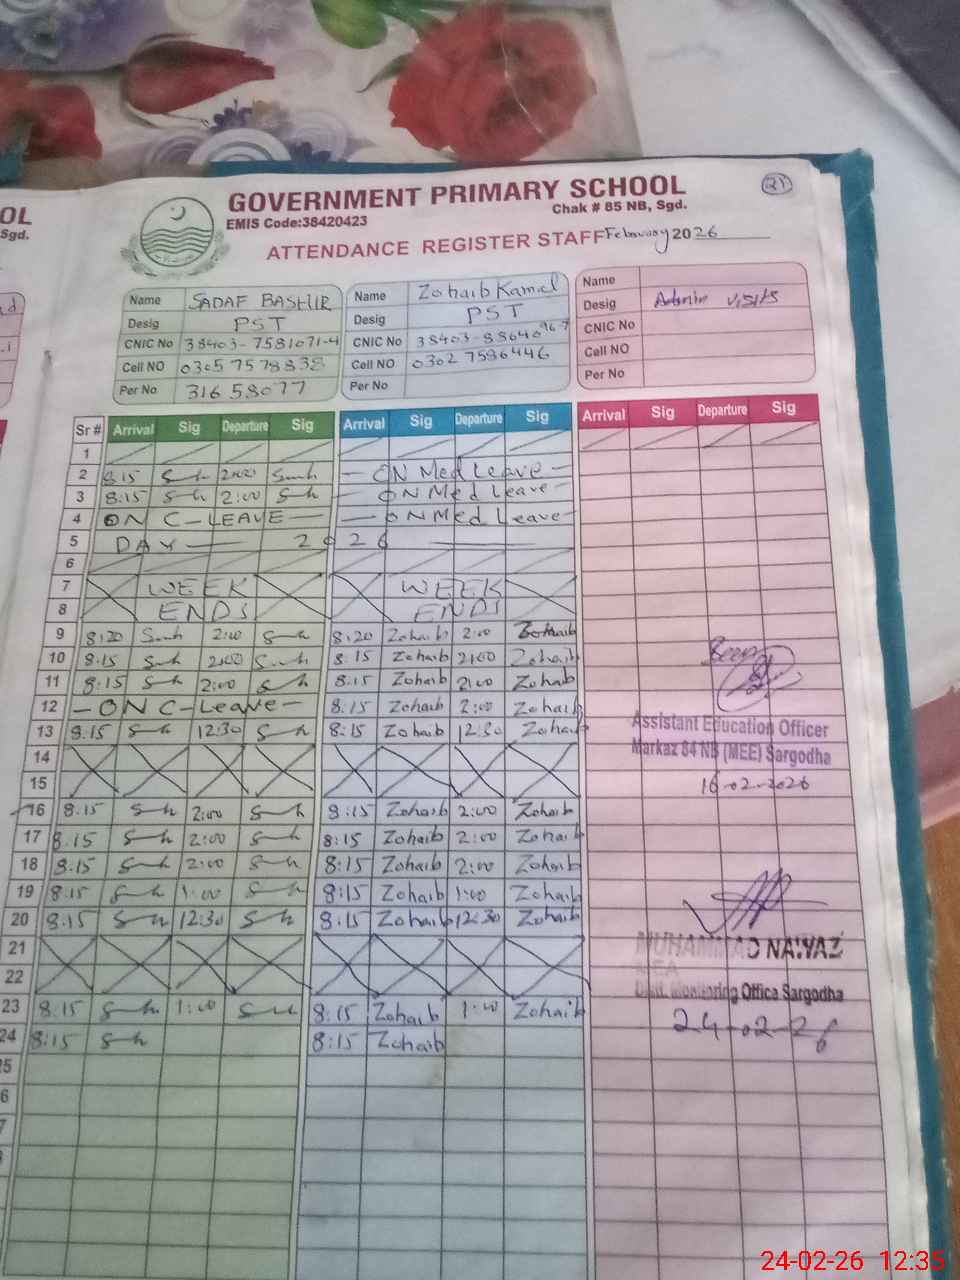 OL
Sgd.
GOVERNMENT PRIMARY SCHOOL
21
EMIS Code:38420423
Chak # 85 NB, Sgd.
ATTENDANCE REGISTER STAFF February 2026
Name SADAF BASHIR Name Zohaib Kamal Name
Desig PST Desig PST Desig Admin visits
CNIC No 38403-7581071-4 CNIC No 38403-8864096-7 CNIC No
Cell NO 03057578838 Cell NO 03027586446 Cell NO
Per No 31658077 Per No Per No
Sr # Arrival Sig Departure Sig Arrival Sig Departure Sig Arrival Sig Departure Sig
1
2 8:15 2:00 — ON Med Leave —
3 8:15 2:00 — ON Med Leave —
4 ON C-LEAVE — — ON Med Leave
5 DAY — 2026 —
6
7 WEEK WEEK
8 ENDS ENDS
9 8:20 2:00 8:20 Zohaib 2:00 Zohaib
10 8:15 2:00 8:15 Zohaib 2:00 Zohaib
11 8:15 2:00 8:15 Zohaib 2:00 Zohaib
12 — ON C-Leave — 8:15 Zohaib 2:00 Zohaib
13 8:15 12:30 8:15 Zohaib 12:30 Zohaib
Assistant Education Officer
Markaz 84 NB (MEE) Sargodha
14
15
16-02-2026
16 8:15 2:00 8:15 Zohaib 2:00 Zohaib
17 8:15 2:00 8:15 Zohaib 2:00 Zohaib
18 8:15 2:00 8:15 Zohaib 2:00 Zohaib
19 8:15 1:00 8:15 Zohaib 1:00 Zohaib
20 8:15 12:30 8:15 Zohaib 12:30 Zohaib
21
MUHAMMAD NAWAZ
MEA
22
Distt. Monitoring Office Sargodha
23 8:15 1:00 8:15 Zohaib 1:00 Zohaib
24-02-26
24 8:15 8:15 Zohaib
24-02-26 12:35